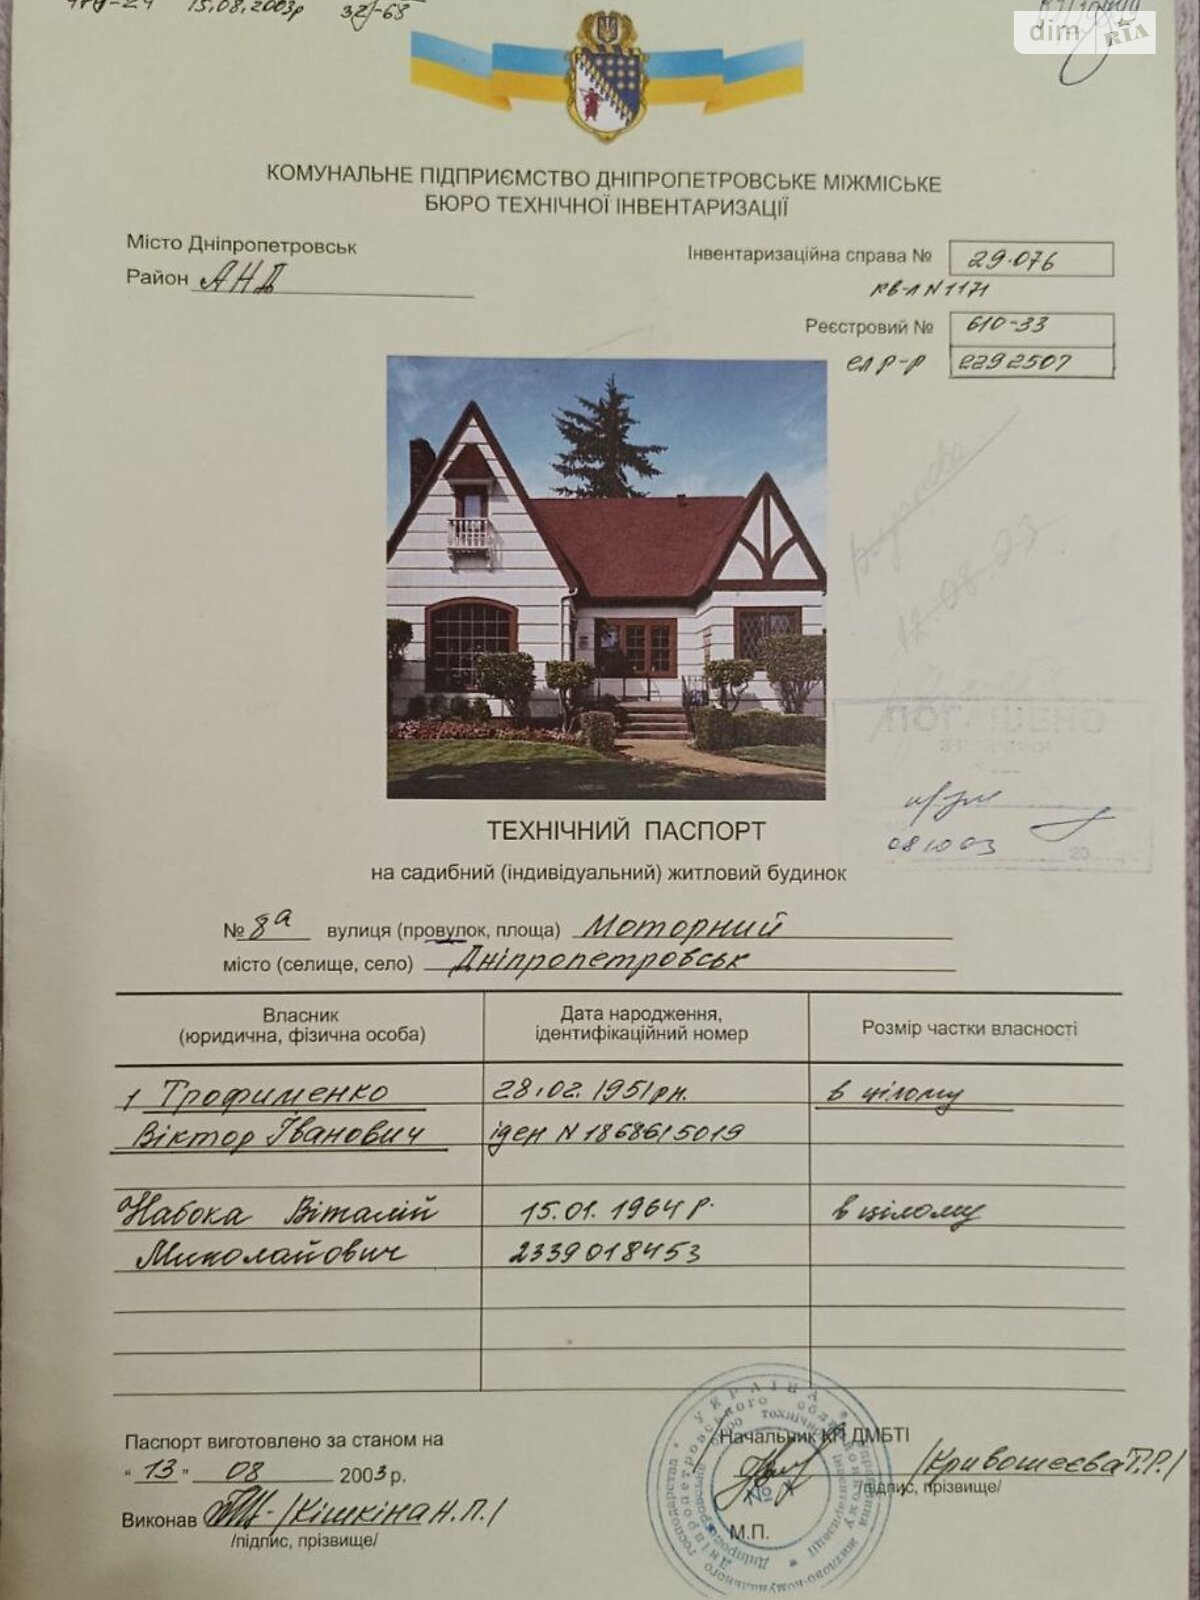 15.08.2003р 32-68
dim RIA
КОМУНАЛЬНЕ ПІДПРИЄМСТВО ДНІПРОПЕТРОВСЬКЕ МІЖМІСЬКЕ
БЮРО ТЕХНІЧНОЇ ІНВЕНТАРИЗАЦІЇ
Місто Дніпропетровськ
Район АНД
Інвентаризаційна справа № 29.076
кв-л N 1171
Реєстровий № 610-33
ел р-р 2292507
12.08.03
08.10.03
ТЕХНІЧНИЙ ПАСПОРТ
на садибний (індивідуальний) житловий будинок
№ 8а вулиця (провулок, площа) Моторний
місто (селище, село) Дніпропетровськ
Власник
(юридична, фізична особа)
Дата народження,
ідентифікаційний номер
Розмір частки власності
1 Трофименко 28.02.1951рн. в цілому
Віктор Іванович іден N 1868615019
Набока Віталій 15.01.1964 р. в цілому
Миколайович 2339018453
Паспорт виготовлено за станом на
" 13 " 08 2003 р.
Виконав /Кішкіна Н.П./
/підпис, прізвище/
Начальник КП ДМБТІ
/Кривошеєва Т.Р./
/підпис, прізвище/
М.П.
УКРАЇНА